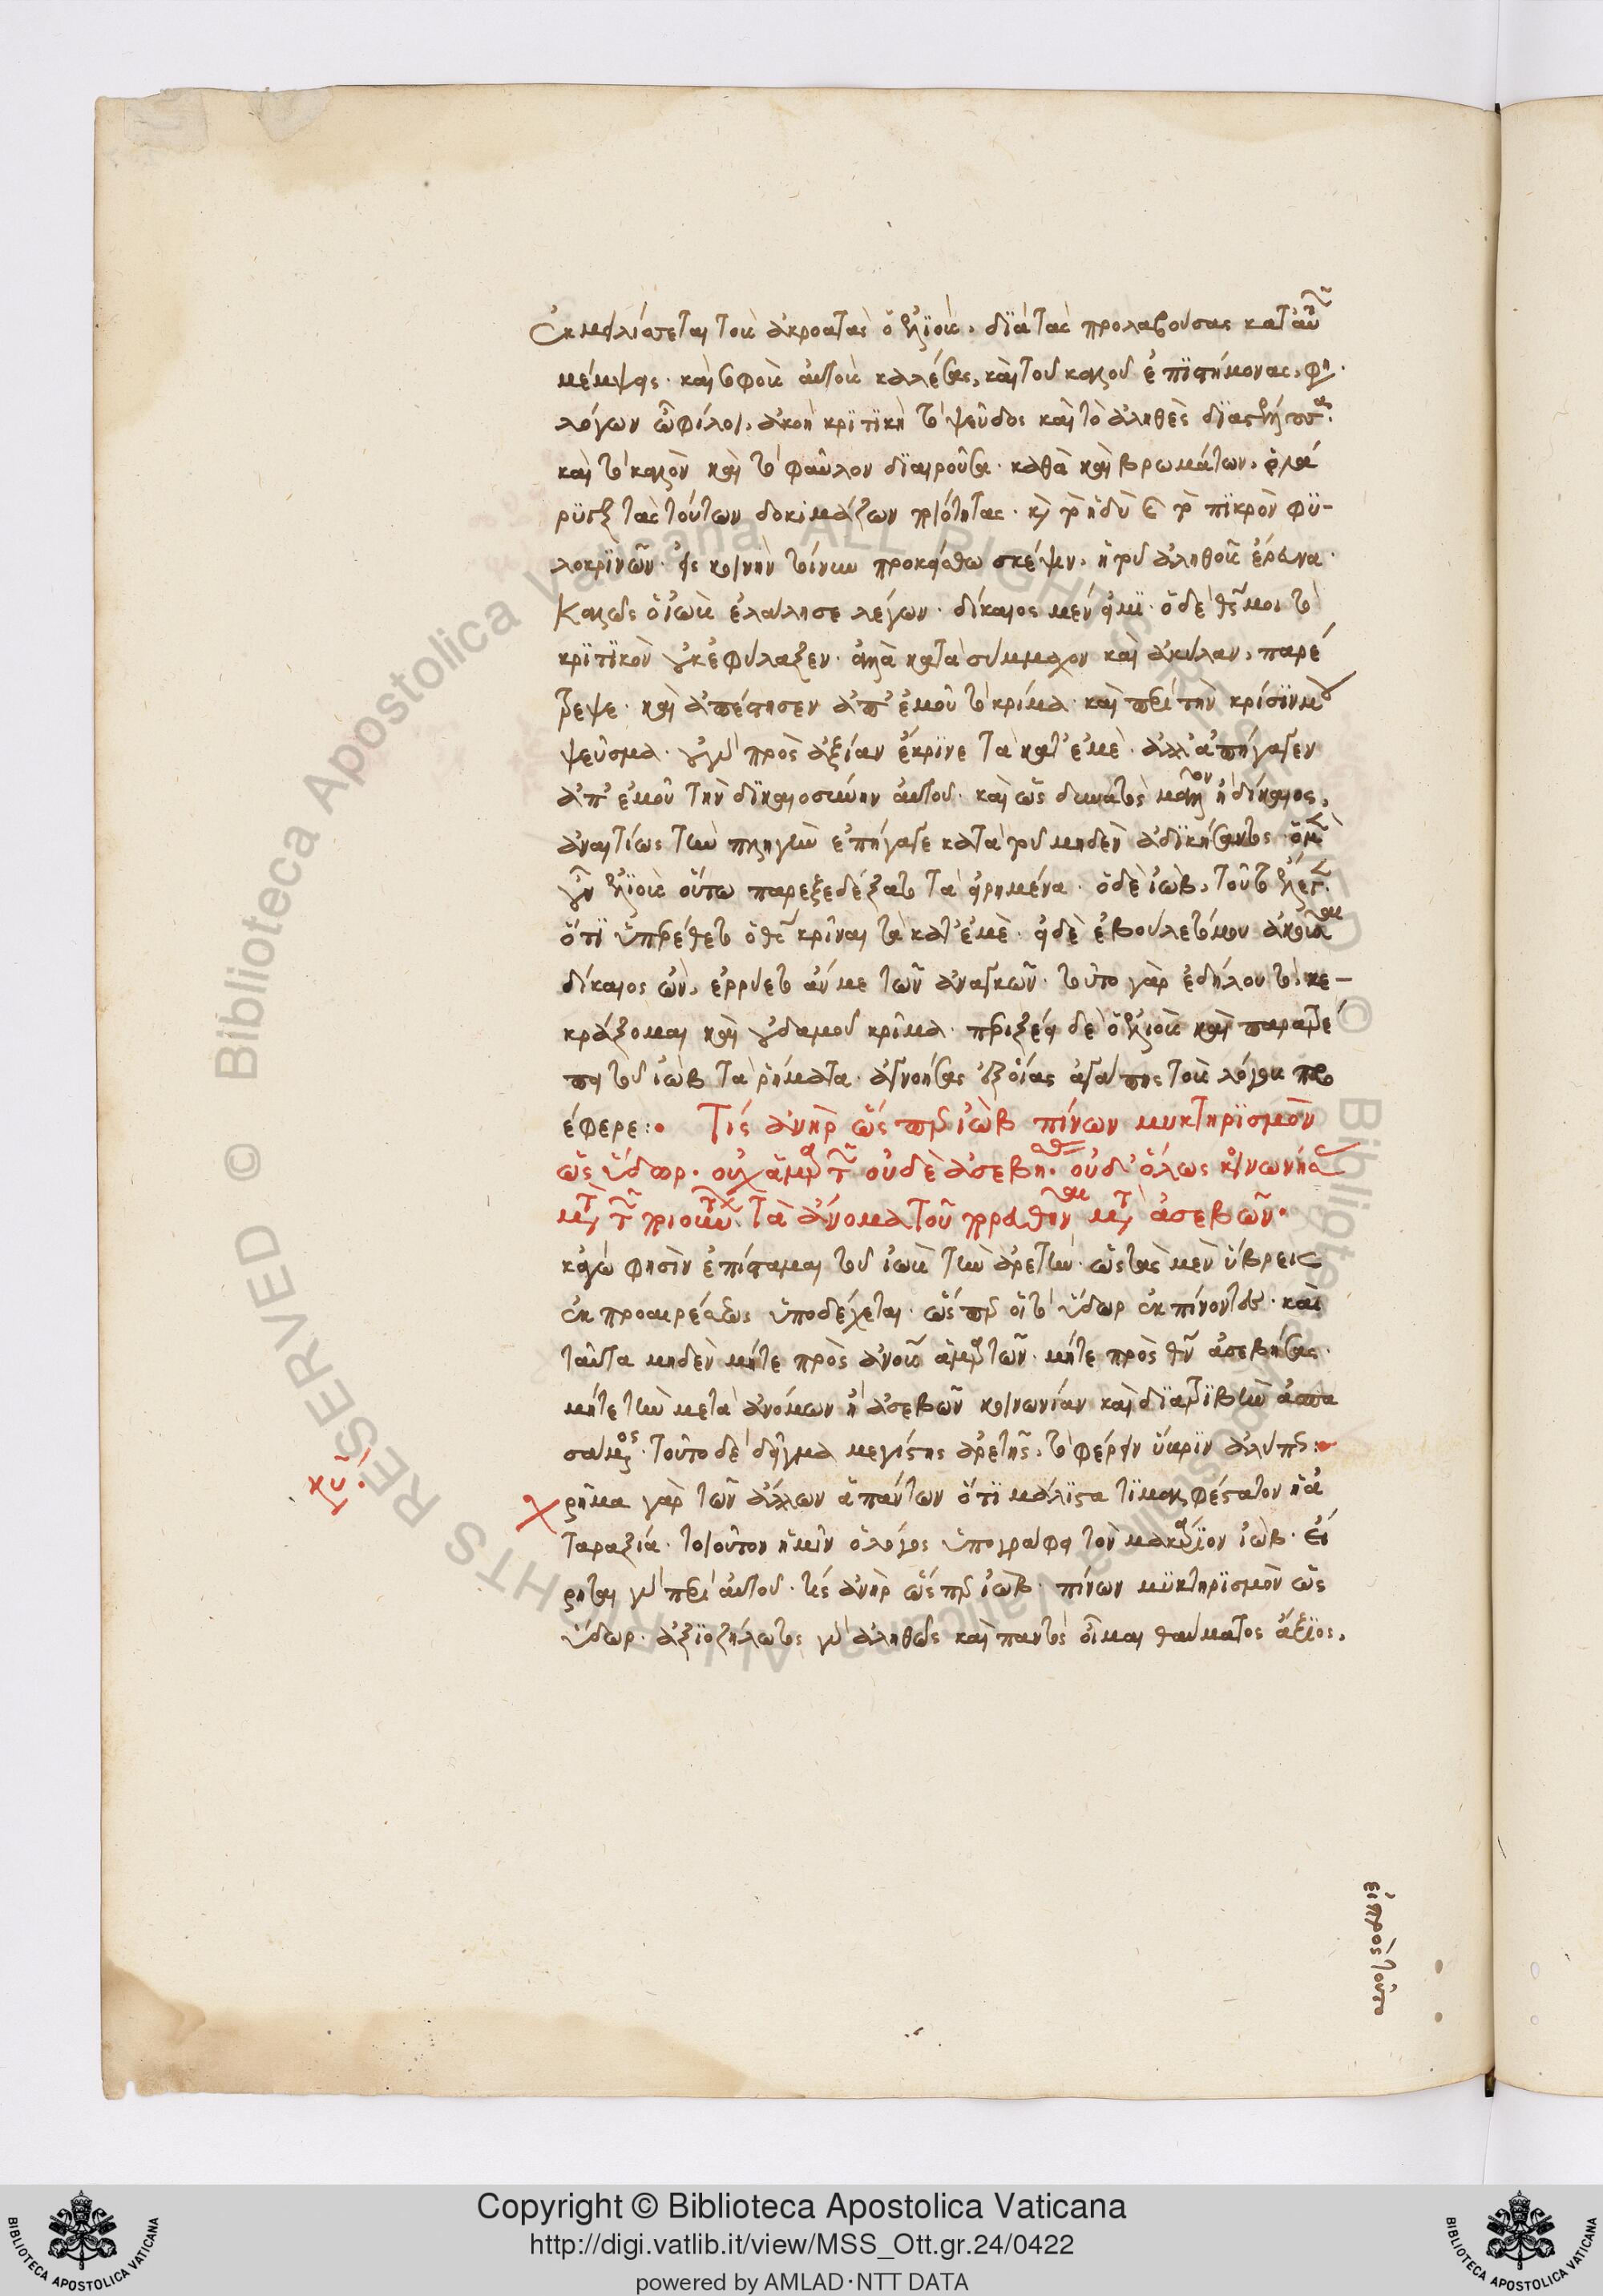 ἐκμειλίσσεται τοὺς ἀκροατὰς ὁ ἐλιοὺς, διὰ τὰς προλαβούσας κατ' αὐτῶν
μέμψεις. καὶ σοφοὺς αὐτοὺς καλέσας, καὶ τοῦ καλοῦ ἐπιστήμονας, φη.
λόγων ὦ φίλοι, ἀκοὴ κριτικὴ τὸ ψεῦδος καὶ τὸ ἀληθὲς
καὶ τὸ καλὸν καὶ τὸ φαῦλον διαιροῦσα. καθὰ καὶ βρωμάτων, ὁ λά
ρυγξ τὰς τούτων δοκιμάζων ποιότητας. καὶ τὸ ἡδὺ καὶ τὸ πικρὸν φυ-
λοκρινῶν. εἰς κοινὴν τοίνυν προκείσθω σκέψιν, ἡ τοῦ ἀληθοῦς ἔρευνα.
καλῶς ὁ ἰὼβ ἐλάλησε λέγων. δίκαιος μέν εἰμι. ὁ δὲ θς μοι τὸ
κριτικὸν οὐκ ἐφύλαξεν. ἀλλὰ κατὰ σύμμαχον καὶ ἀκύλαν, παρέ
τρεψε. καὶ ἀπέστησεν ἀπ' ἐμοῦ τὸ κρίμα. καὶ περὶ τὴν κρίσιν μου
ψεῦσμα. οὐ γὰρ πρὸς ἀξίαν ἔκρινε τὰ κατ' ἐμὲ. ἀλλ' ἀπήγαγεν
ἀπ' ἐμοῦ τὴν δικαιοσύνην αὐτοῦ. καὶ ὡς δυνατὸς μᾶλλον ἢ δίκαιος,
ἀναιτίως τὴν πληγὴν ἐπήγαγε κατὰ τοῦ μηδὲν ἀδικήσαντος.
οὖν ἐλιοὺς οὕτω παρεξεδέξατο τὰ εἰρημένα. ὁ δὲ ἰὼβ, τοῦτο
ὅτι ὑπερέθετο ὁ θς κρῖναι τὰ κατ' ἐμὲ. εἰ δὲ ἐβούλετό μου ἀκοῦσαι
δίκαιος ὢν, ἐρρύετο ἄν με τῶν ἀναγκῶν. τοῦτο γὰρ ἐδήλου τὸ, κε-
κράξομαι καὶ οὐδαμοῦ κρίμα. περιξέει δὲ ὁ ἐλιοὺς καὶ παρατρέ
πει τοῦ ἰὼβ τὰ ῥήματα. ἀγνοήσας ἐξ οἵας ἀγάπης τοὺς λόγους προ
έφερε: Τίς ἀνὴρ ὥσπερ ἰὼβ πίνων μυκτηρισμὸν
ὥσπερ ὕδωρ. οὐχ ἁμαρτὼν οὐδὲ ἀσεβήσας. οὐδ' ὅλως κοινωνήσας
μετὰ ποιούντων τὰ ἄνομα τοῦ πορευθῆναι μετὰ ἀσεβῶν.
κἀγὼ φησὶν ἐπίσταμαι τοῦ ἰὼβ τὴν ἀρετὴν. ὡς τὰς μὲν ὕβρεις
ἐκ προαιρέσεως ὑποδέχεται. ὥσπερ οἱ τὸ ὕδωρ ἐκπίνοντες. καὶ
ταῦτα μηδὲν μήτε πρὸς ἀνοὺς ἁμαρτὼν. μήτε πρὸς θν ἀσεβήσας.
μήτε τὴν μετὰ ἀνόμων ἢ ἀσεβῶν κοινωνίαν καὶ διατριβὴν ἀσπα
σάμενος. τοῦτο δὲ δεῖγμα μεγίστης ἀρετῆς, τὸ φέρειν ὕβριν ἀλύπως:
χρῆμα γὰρ τῶν ἄλλων ἁπάντων ὅτι μάλιστα τιμαλφέστατον ἡ ἀ
ταραξία. τοιοῦτον ἡμῖν ὁ λόγος ὑπογράφει τὸν μακάριον ἰὼβ. εἴ
ρηται γὰρ περὶ αὐτοῦ. τίς ἀνὴρ ὥσπερ ἰὼβ. πίνων μυκτηρισμὸν ὡς
ὕδωρ. ἀξιοζήλωτος γὰρ ἀληθῶς καὶ παντὸς οἶμαι θαύματος ἄξιος,
εἰ πρὸς τοῦτο
© Biblioteca Apostolica Vaticana ALL RIGHTS RESERVED
Copyright © Biblioteca Apostolica Vaticana
http://digi.vatlib.it/view/MSS_Ott.gr.24/0422
powered by AMLAD·NTT DATA
BIBLIOTECA APOSTOLICA VATICANA
BIBLIOTECA APOSTOLICA VATICANA